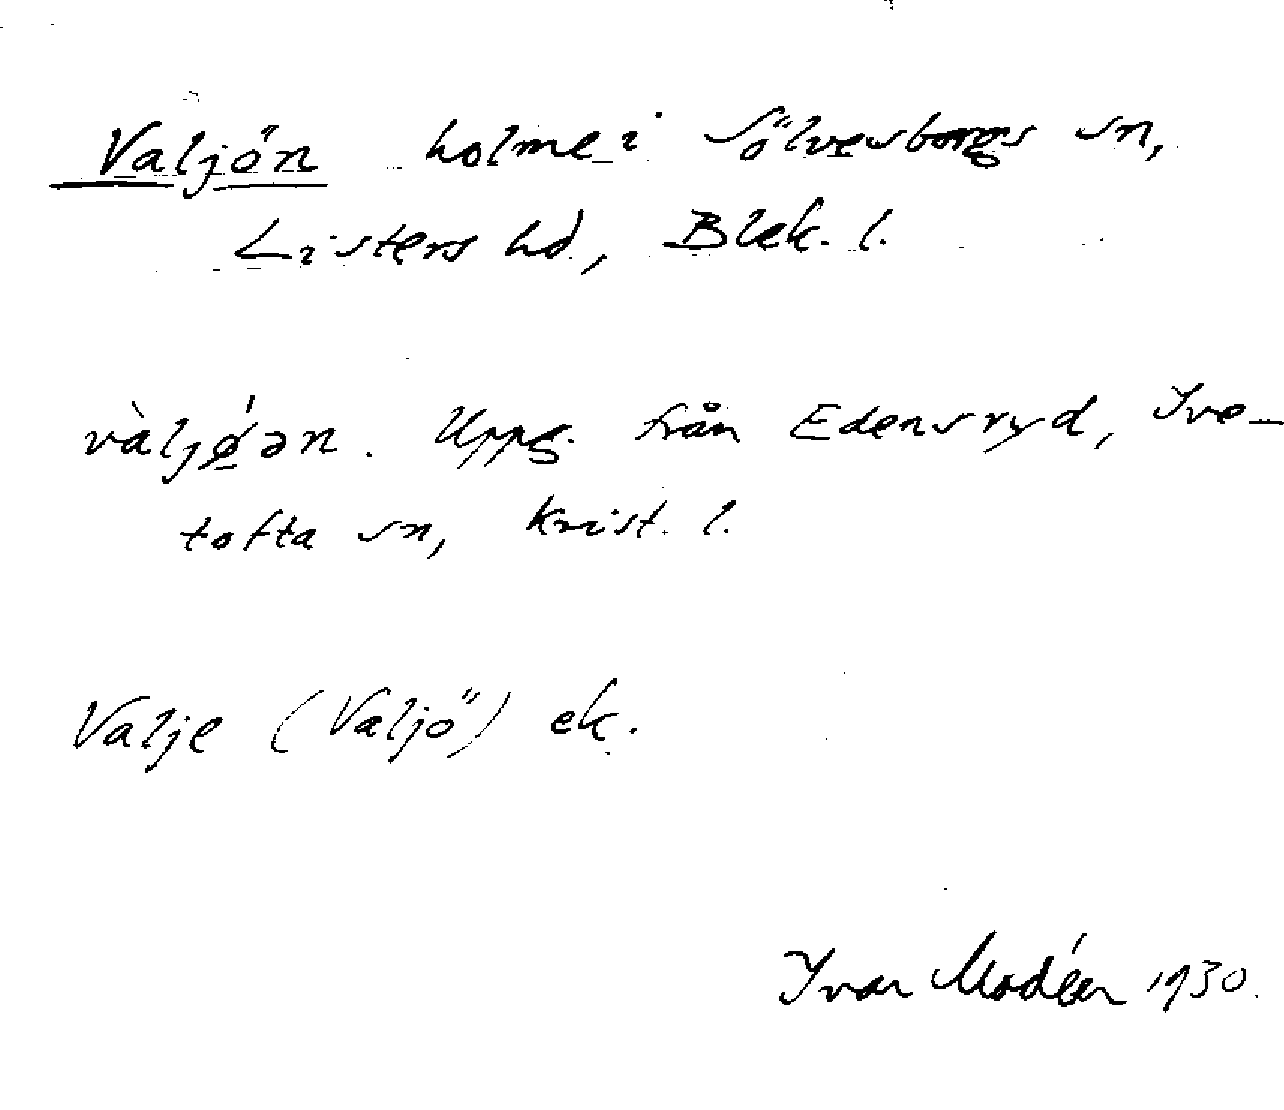 Valjön holme i Sölvesborgs sn,
Listers hd, Blek. l.
vàljǿən. Uppg. från Edensryd, Ive-
tofta sn, Krist. l.
Valje (Valjö) ek.
Ivar Modéer 1930.